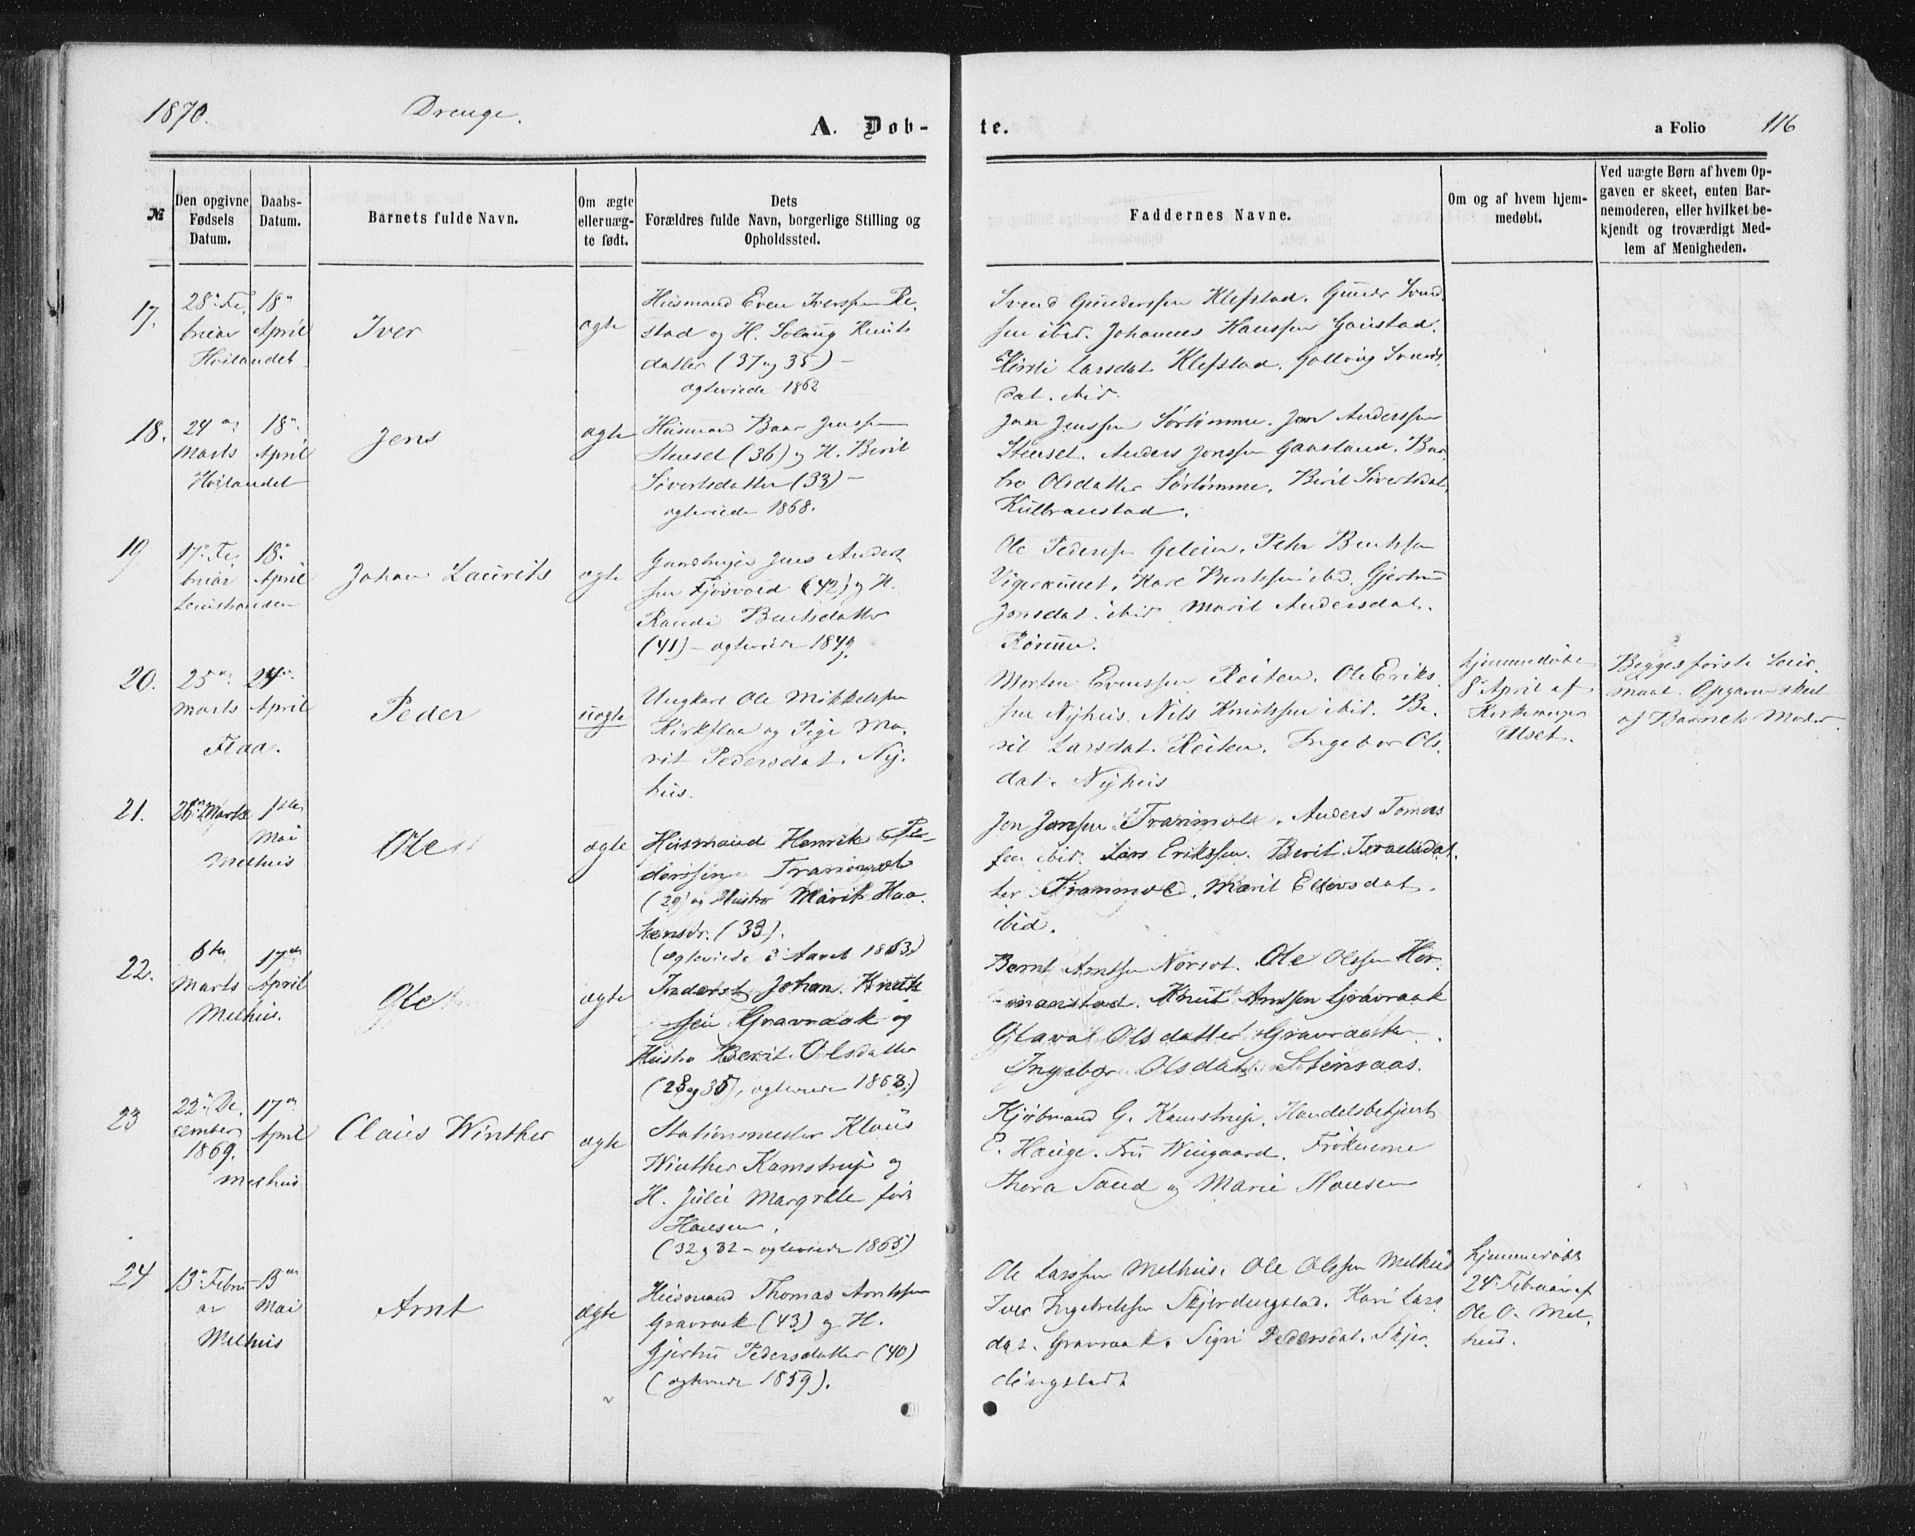 1870.
Drenge.
A. Døb-
te.
a Folio 116
№
Den opgivne
Fødsels
Datum.
Daabs-
Datum.
Barnets fulde Navn.
Om ægte
eller uæg-
te født.
Dets
Forældres fulde Navn, borgerlige Stilling og
Opholdssted.
Faddernes Navne.
Om og af hvem hjem-
medøbt.
Ved uægte Børn af hvem Op-
gaven er skeet, enten Bar-
nemoderen, eller hvilket be-
kjendt og troværdigt Med-
lem af Menigheden.
17.
28de Fe-
bruar
Høilandet
18de
April
Iver
ægte
Husmand Even Iverssen Re-
stad og H. Solaug Knuts
datter (37 og 35) –
ægteviede 1862
Svend Gunderssen Klefstad. Gunder Svend-
sen ibid. Johannes Hanssen Gaustad.
Kirsti Larsdat. Klefstad. Gollaug Svends-
dat. ibid.
18.
24de
Marts
Høilandet
18de
April
Jens
ægte
Husmand Baar Jenssen
Stenset (36) og H. Berit
Sivertsdatter (33) –
ægteviede 1868.
Jens Jenssen Sørtømme. Jon Anderssen
Stenset. Anders Jonssen Gaasland. Bar-
bro Olsdatter Sørtømme. Berit Sivertsdat.
Kulbranstad.
19
17de Fe-
bruar
Leinstranden
18de
April
Johan Laurits
ægte
Gaardbruger Jens Anders-
sen Fjøsvold (42) og H.
Randi Berntsdatter
(41) – ægteviede 1849.
Ole Pederssen Gelein. Peter Berntssen
Vigeraunet. Karl Berntssen ibid. Gjertrud
Jonsdat. ibid. Marit Andersdat.
20.
25de
Marts
Flaa.
24de
April
Peder
uægte
Ungkarl Ole Mikkelssen
Kirkflaa og Pige Ma-
rit Pedersdat. Ny-
hus.
Morten Evenssen Reiten. Ole Eriks-
sen Nyhus. Nils Knutssen ibid. Be-
rit Larsdat. Reiten. Ingebor Ols-
dat. Nyhus
hjemmedøbt
8de April af
Kirkesanger
Ulset.
Begges første Leier-
maal. Opgaven skeet
af Barnets Moder
21.
28de Marts
Melhus
1ste
Mai
Ole
ægte
Husmand Henrik Pe-
derssen Tranmæl
(29) og Hustru Marit Haa-
kensdr. (33).
(ægteviede i Aaret 1863)
Jon Jonssen Tranmæl. Anders Tomas-
sen ibid. Lars Erikssen. Berit Israelsdat-
ter Tranmæl. Marit Ellevsdat.
ibid.
22.
6te
Marts
Melhus.
17de
April
Ole
ægte
Inderst Johan Knut-
sen Gravraak og
Hustru Berit Olsdatter
(28 og 35), ægteviede 1868.)
Bernt Arntsen Norset. Ole Olssen Her-
manstad. Knut Arntsen Gravraak
Olava Olsdatter Gravraak.
Ingebor Olsdat. Stensaas.
23
22de De-
cember
1869.
Melhus
17de
April
Claus Winther
ægte
Stationsmester Klaus
Winther Kamstrup og
H. Julie Margrete født
Hansen.
(32 og 32 – ægteviede 1865)
Kjøbmand G. Kamstrup. Handelsbetjent
E. Hauge. Fru Wingaard. Frøknerne
Thora Sand og Marie Hansen
24
13de Febru-
ar
Melhus
13de
Mai
Arnt
ægte
Husmand Thomas Arntssen
Gravraak (43) og H.
Gjertru Pedersdatter (40)
(ægteviede 1859).
Ole Larssen Melhus. Ole Olssen Melhus
Iver Ingebrektsen Skjerdingstad. Kari Lars-
dat. Gravraak. Sigri Pedersdat. Skjer-
dingstad.
hjemmedøbt
24de Februar af
Ole O. Mel-
hus.